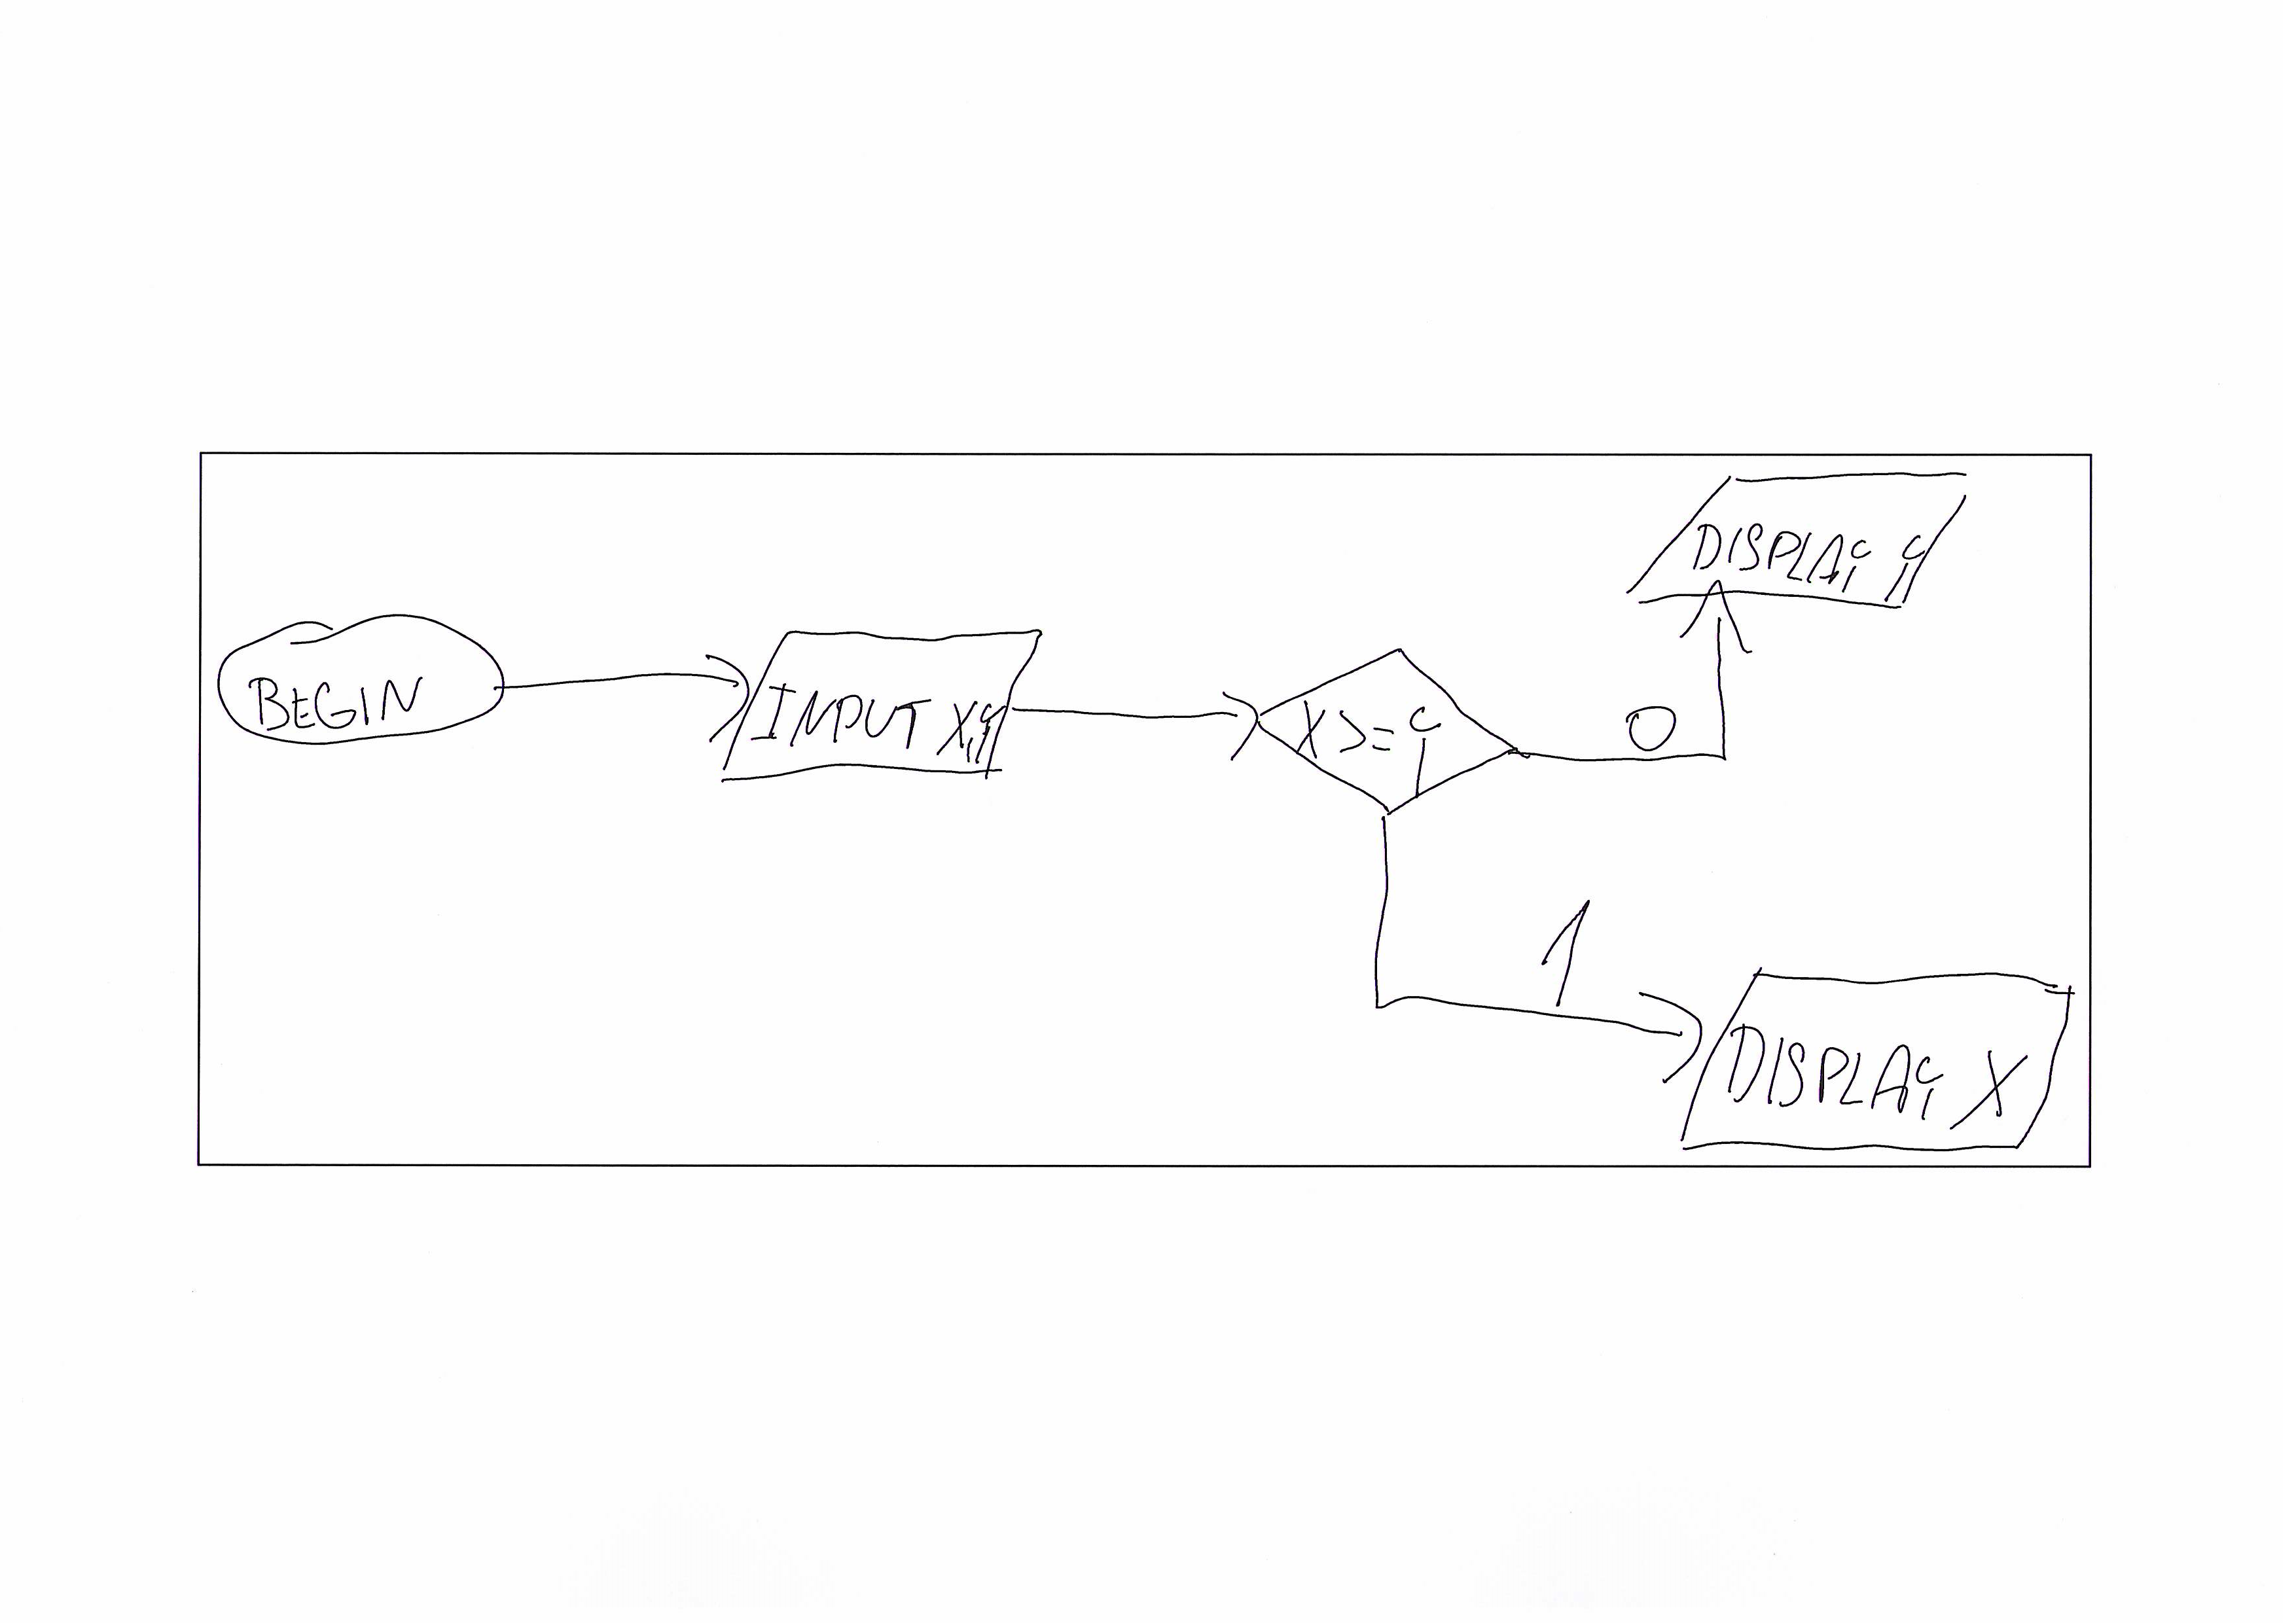 BEGIN
INPUT X,Y
X >= Y
0
DISPLAY Y
1
DISPLAY X